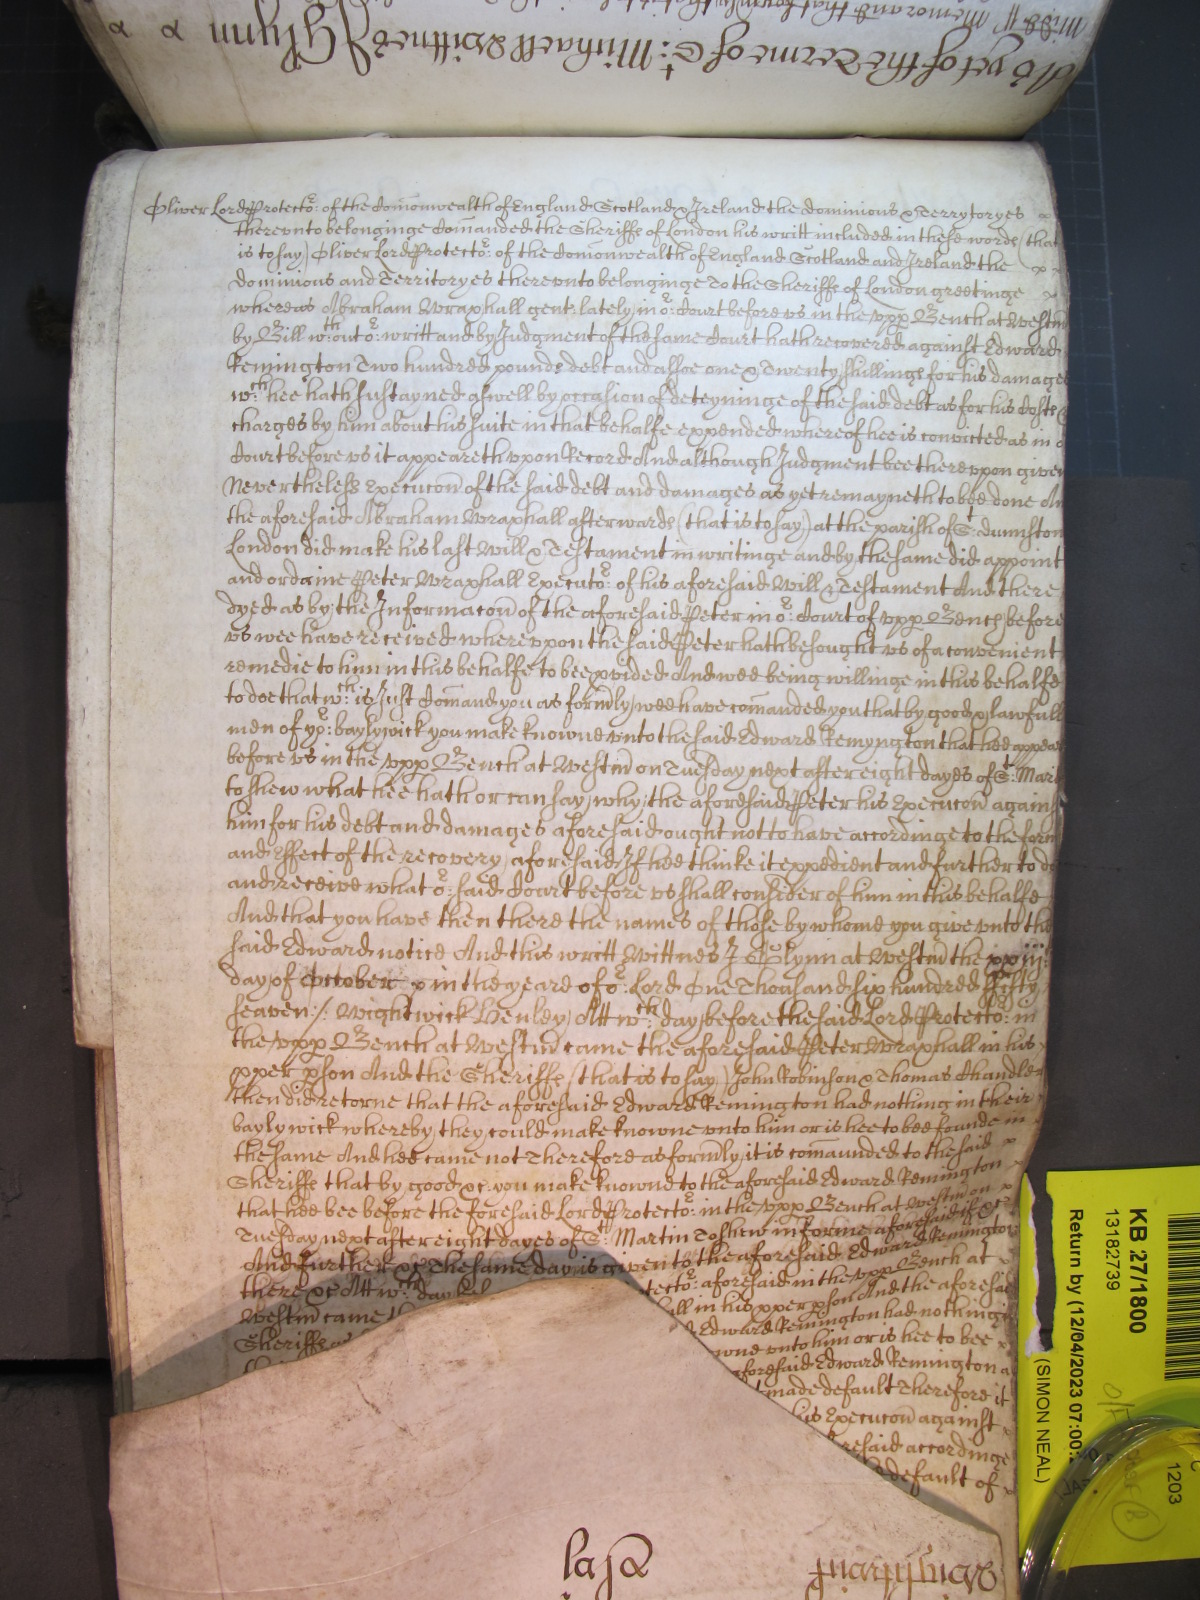 As yet of the Terme of St: Michaell Wittnes J Glynn
Midd ss Memorand that
Oliver Lord Protector: of the Comonwealth of England Scotland & Ireland the Dominions & Terrytoryes
thereunto belonginge Comanded the Sheriffe of London his writt included in these words (that
is to say) Oliver Lord Protector: of the Comonwealth of England Scotland and Ireland the
Dominions and Territoryes thereunto belonginge To the Sheriffe of London greetinge
whereas Abraham Wraxhall gent: lately in or: Court before us in the upp Bench at Westm
by Bill wthout or: writt and by Judgment of the same Court hath recovered against Edward
Remington Two hundred pounds debt and alsoe one & Twenty shillings for his damages
wch: hee hath sustayned aswell by occasion of deteyninge of the said debt as for his Costs &
charges by him about his suite in that behalfe expended whereof hee is convicted as in o
Court before us it appeareth uppon Record And although Judgment bee thereuppon given
Nevertheless Execucon of the said debt and damages as yet remayneth to bee done An
the aforesaid Abraham Wraxhall afterwards (that is to say) at the parish of St: Dunnston
London did make his last Will & Testament in writinge and by the same did appoint
and ordaine Peter Wraxhall Executor: of his aforesaid Will & Testament And there
dyed as by the Informacon of the aforesaid Peter in or: Court of upp Bench before
us wee have received whereuppon the said Peter hath besought us of a convenient
remedie to him in this behalfe to bee pvided And wee being willinge in this behalfe
to doe that wch: is Just Comand you as formly wee have comanded you that by good & lawfull
men of yor: baylywick you make knowne unto the said Edward Remyngton that hee appear
before us in the upp Bench at Westm on Tuesday next after eight dayes of St: Mart
to shew what hee hath or can say why the aforesaid Peter his Execucon agains
him for his debt and damages aforesaid ought not to have accordinge to the form
and Effect of the recovery aforesaid If hee thinke it expedient and further to do
and receive what or: said Court before us shall consider of him in this behalfe
And that you have then there the names of those by whome you give unto the
said Edward notice And this writt Wittnes J Glynn at Westm the xxiij
day of October in the yeare of or: Lord One Thousand six hundred fifty
seaven:/: Wightwick Henley Att wch: day before the said Lord Protector: in
the upp Bench at Westm came the aforesaid Peter Wraxhall in his
pper pson And the Sheriffe (that is to say) John Robinson & Thomas Chandler
then did retorne that the aforesaid Edward Remington had nothing in their
baylywick whereby they could make knowne unto him or is hee to bee founde in
the same And hee came not Therefore as formly it is comaunded to the said
Sheriffe that by good &c: you make knowne to the aforesaid Edward Remington
that hee bee before the foresaid Lord Protector: in the upp Bench at Westm on
Tuesday next after eight dayes of St: Martin To shew in forme aforesaid if &c
And further &c The same day is given to the aforesaid Edward Remington
there &c Att wch: day bef tector: aforesaid in the upp Bench at
Westm came th all in his pper pson And the aforesai
Sheriffe Edward Remington had nothing
owne unto him or is hee to bee
aforesaid Edward Remington
made default Therefore it
his Execucon against
resaid accordinge
default of
KB 27/1800
13182739
Return by (12/04/2023 07:00:
(SIMON NEAL)
1203